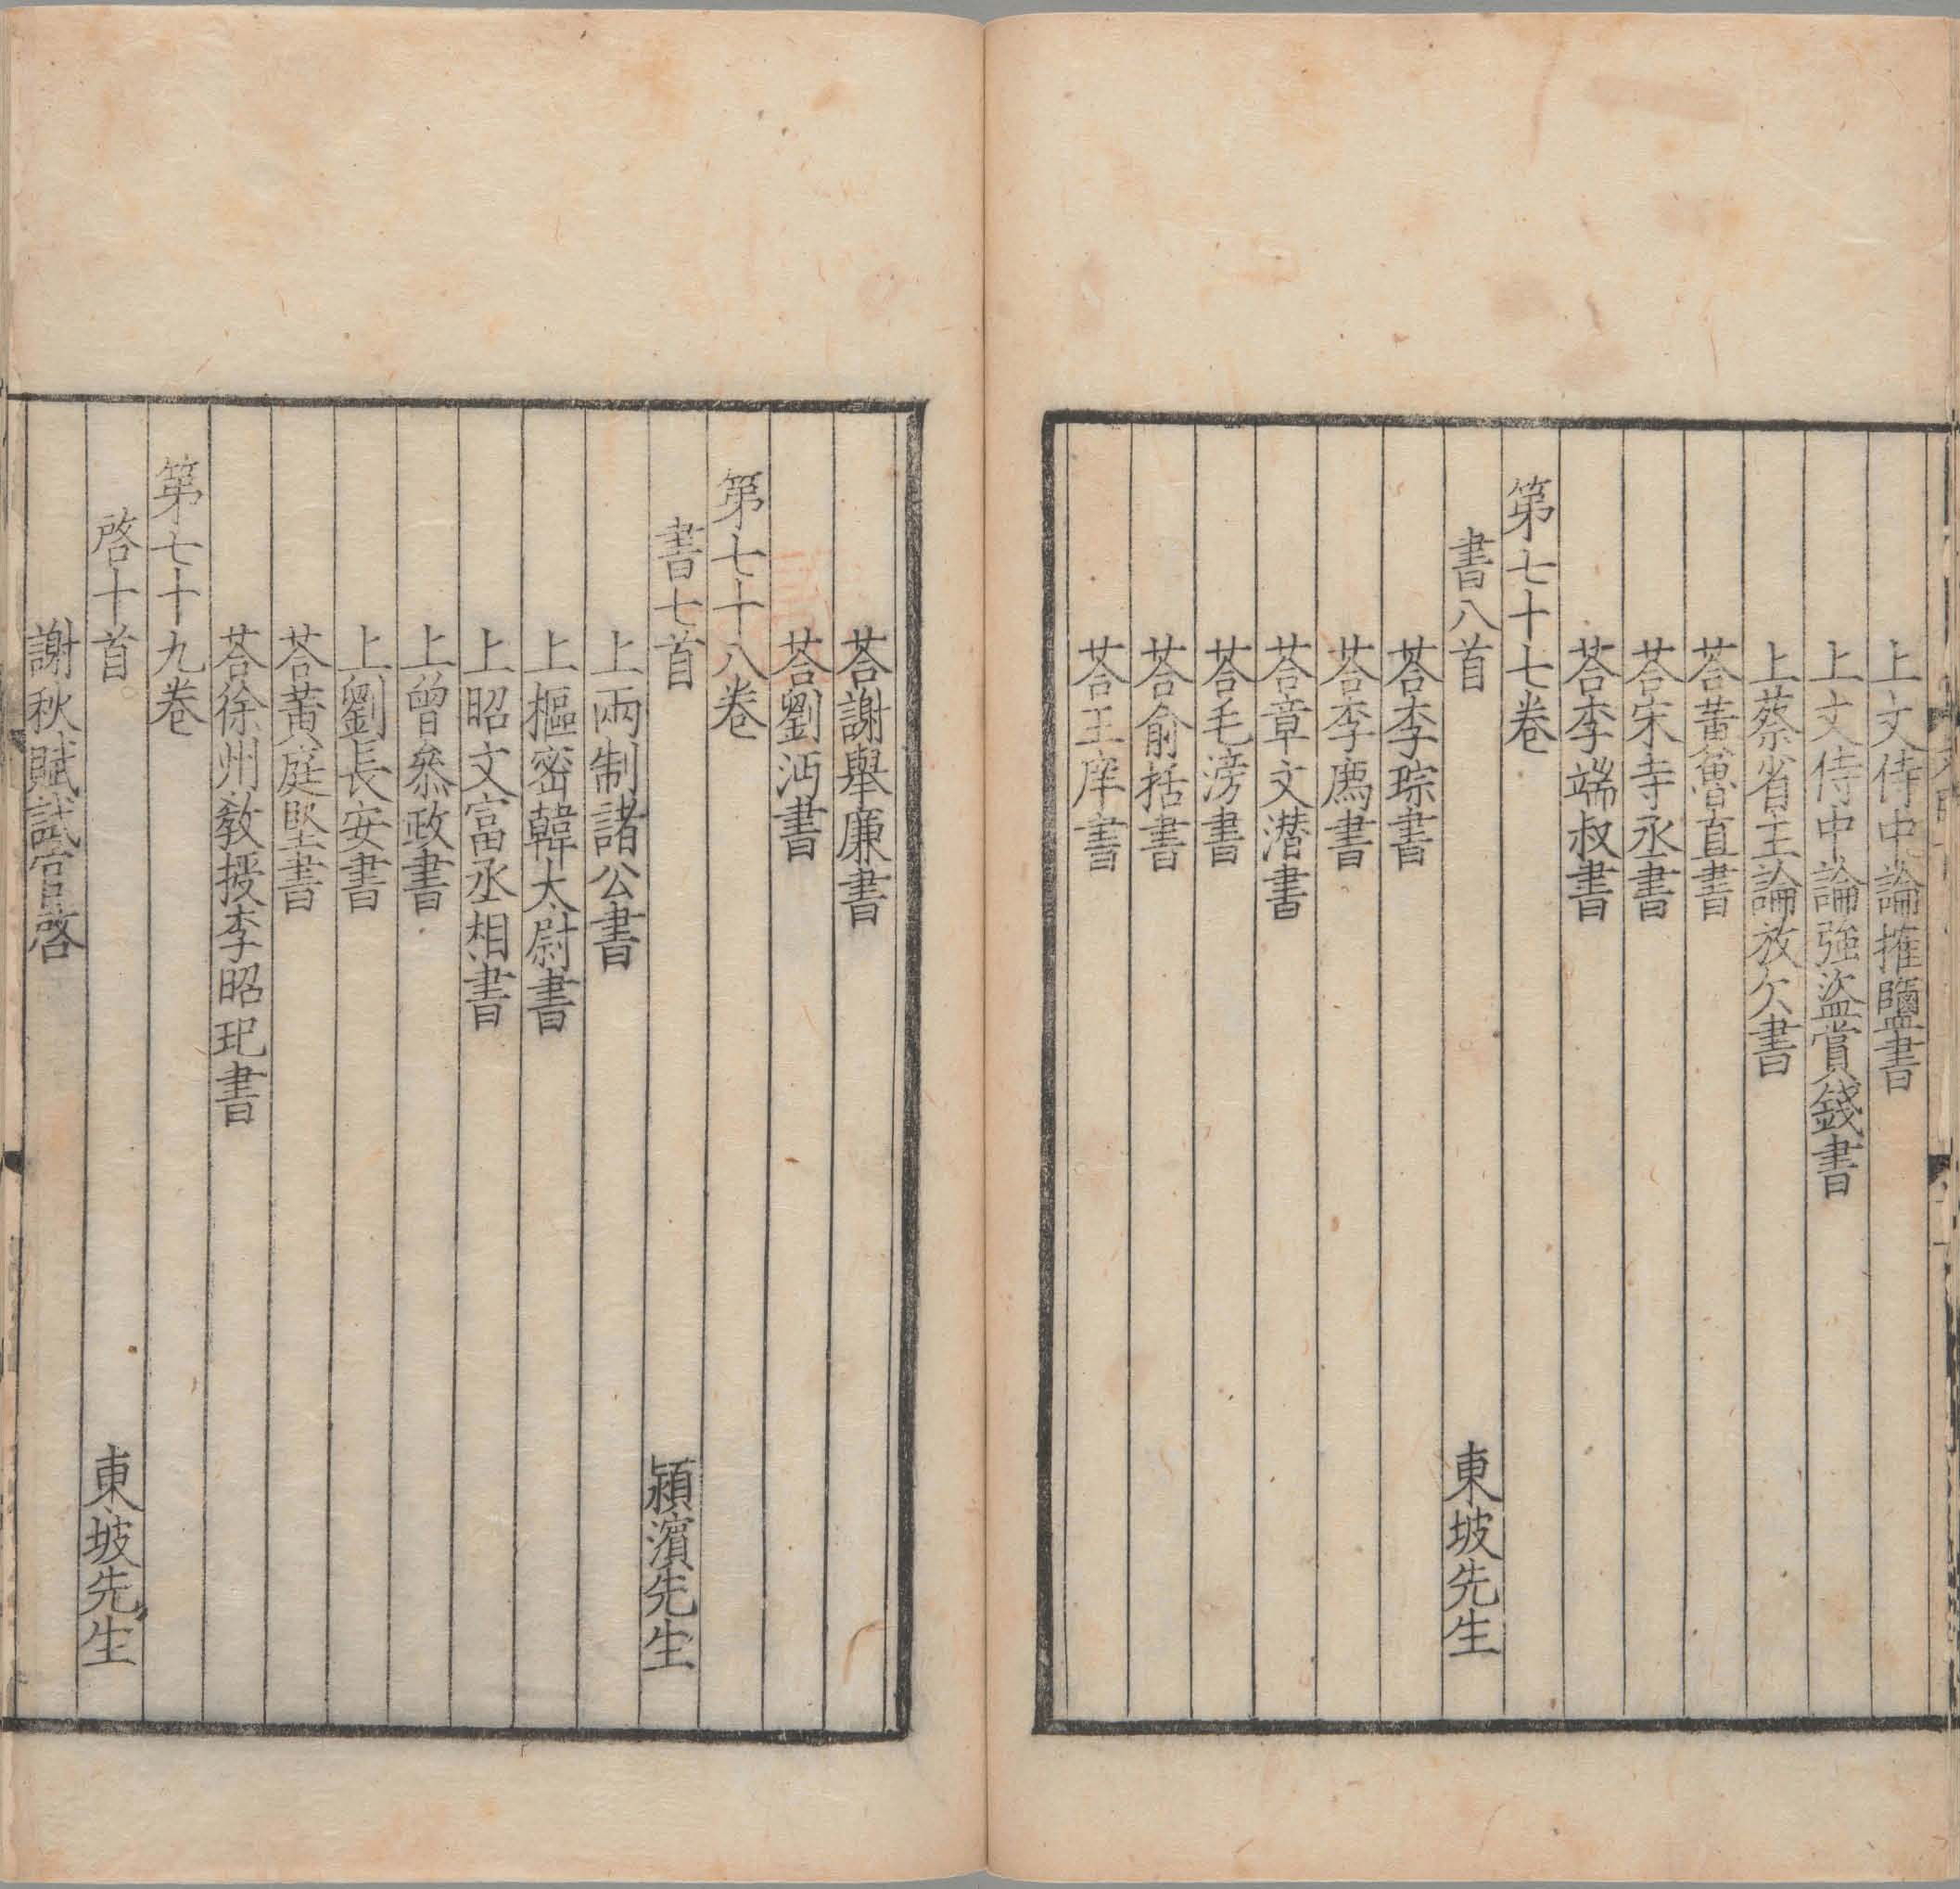 上文侍中論搉鹽書
上文侍中論強盜賞錢書
上蔡省主論放欠書
荅黃魯直書
荅宋寺丞書
荅李端叔書
第七十七卷
書八首 東坡先生
荅李琮書
荅李廌書
荅章文潛書
荅毛滂書
荅俞括書
荅王庠書
荅謝舉廉書
荅劉沔書
第七十八卷
書七首 潁濱先生
上兩制諸公書
上樞密韓太尉書
上昭文富丞相書
上曾叅政書
上劉長安書
荅黃庭堅書
荅徐州教授李昭玘書
第七十九卷
啓十首 東坡先生
謝秋賦試官啓